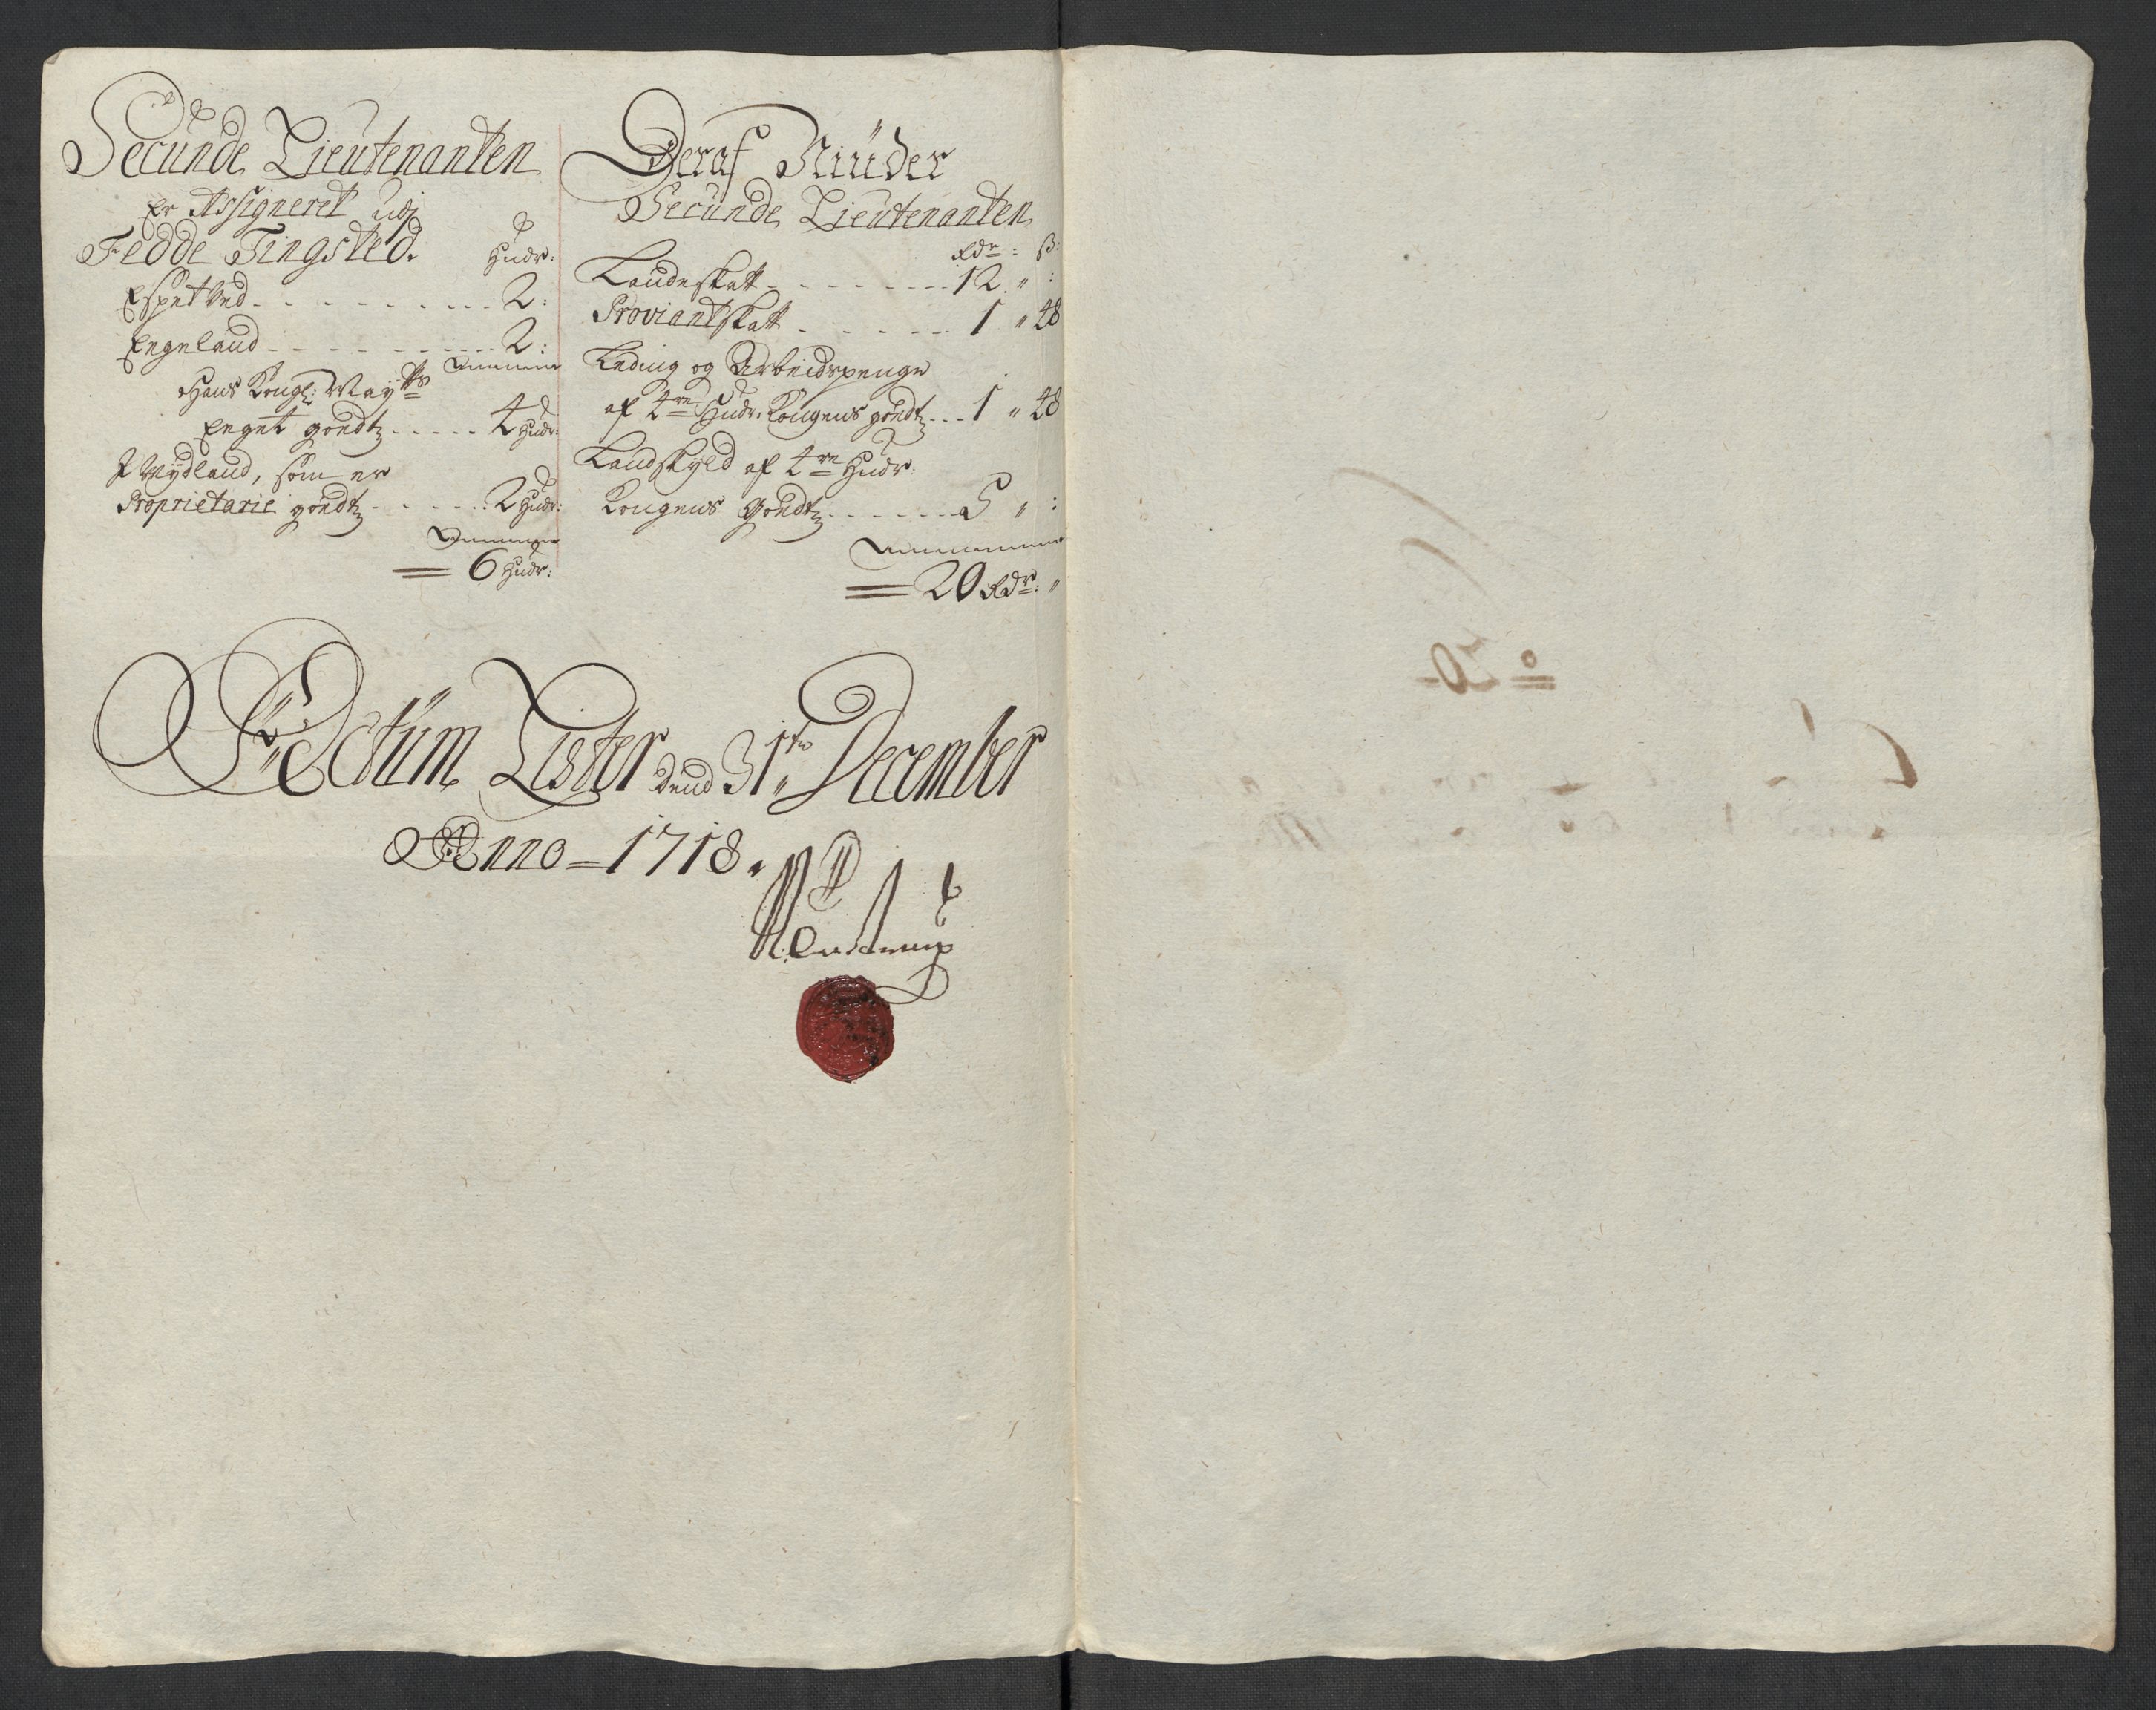 Secunde Lieutenanten
er Assigneret udj
Fedde Tingsted. Hudr:
Espetved - - - - - - - - - 2:
Engeland - - - - - - - - - 2:
Hans Kongl: Mayts
Eget goedtz - - - - - 4 Hudr:
J Nydland, som er
Proprietarie goedtz - - - - - - 2 Hudr:
Summa
= 6 Hudr:
Deraf Niüder
Secunde Lieutenanten
Rdr: ß:
Landeskatt - - - - - - - 12 " :
Proviantskatt - - - - - - 1 " 48
Leding og Arbeidspenge
af 4re Hudr: Kongens goedtz - - - 1 " 48
Landskyld af 4re Hudr:
Kongens Goedtz - - - - - - 5 " :
Summa
= 20 Rdr: "
Actum Lister dend 31te December
Anno - 1718.